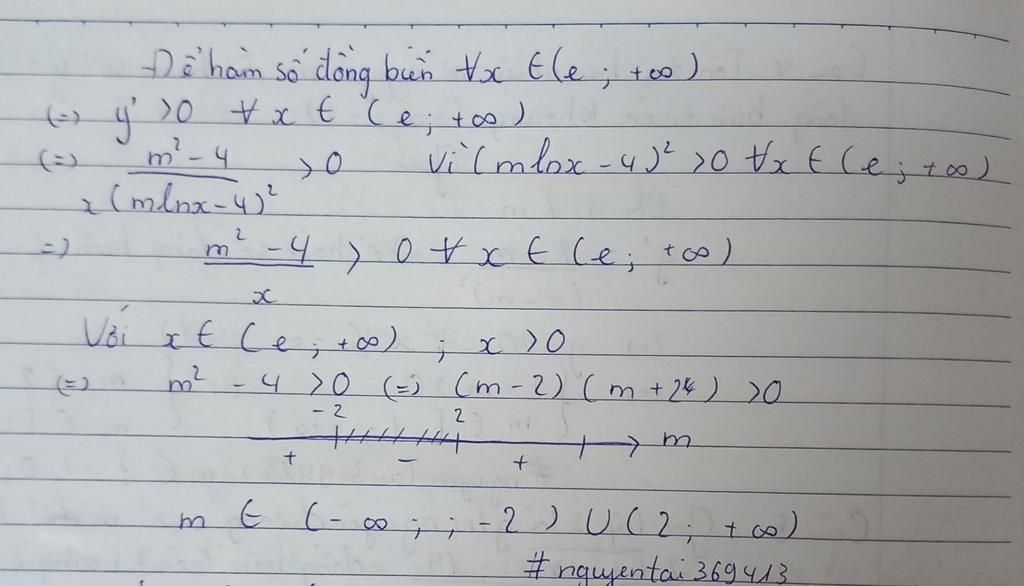 Để hàm số đồng biến ∀x ∈ (e; +∞)
(=) y' > 0 ∀ x ∈ (e; +∞)
(=) (m² - 4)/(x(mlnx - 4)²) > 0 Vì (mlnx - 4)² > 0 ∀x ∈ (e; +∞)
=) (m² - 4)/x > 0 ∀ x ∈ (e; +∞)
Với x ∈ (e; +∞) ; x > 0
(=) m² - 4 > 0 (=) (m - 2)(m + 2) > 0
-2 2 m
+ - +
m ∈ (-∞; ; -2) U (2; +∞)
#nguyentai369413